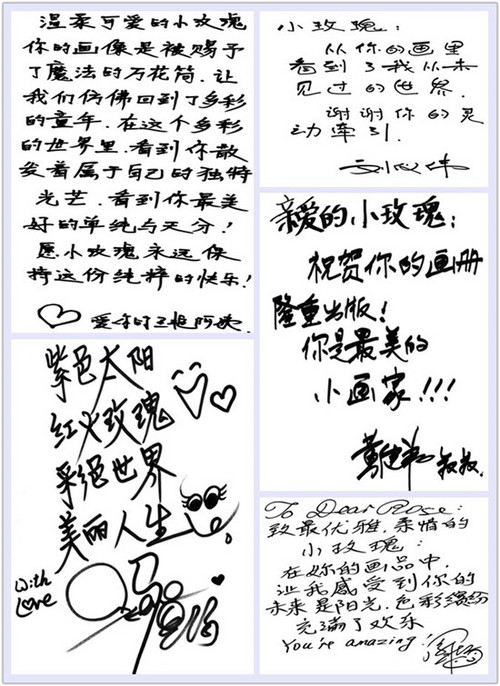 温柔可爱的小玫瑰
你的画像是被赐予
了魔法的万花筒.让
我们仿佛回到了多彩
的童年.在这个多彩
的世界里.看到你散
发着属于自己的独特
光芒.看到你最美
好的单纯与天分!
愿小玫瑰永远保
持这份纯粹的快乐!
爱你的王 阿姨.
小玫瑰:
从你的画里
看到了我从未
见过的世界.
谢谢你的灵
动牵引.
亲爱的小玫瑰:
祝贺你的画册
隆重出版!
你是最美的
小画家!!!
叔叔.
紫色太阳
红火玫瑰
彩绝世界
美丽人生
With
Love
To Dear Rose:
致最优雅.亲情的
小玫瑰:
在妳的画品中.
让我感受到你的
未来是阳光.色彩缤纷
充满了欢乐
You're amazing!